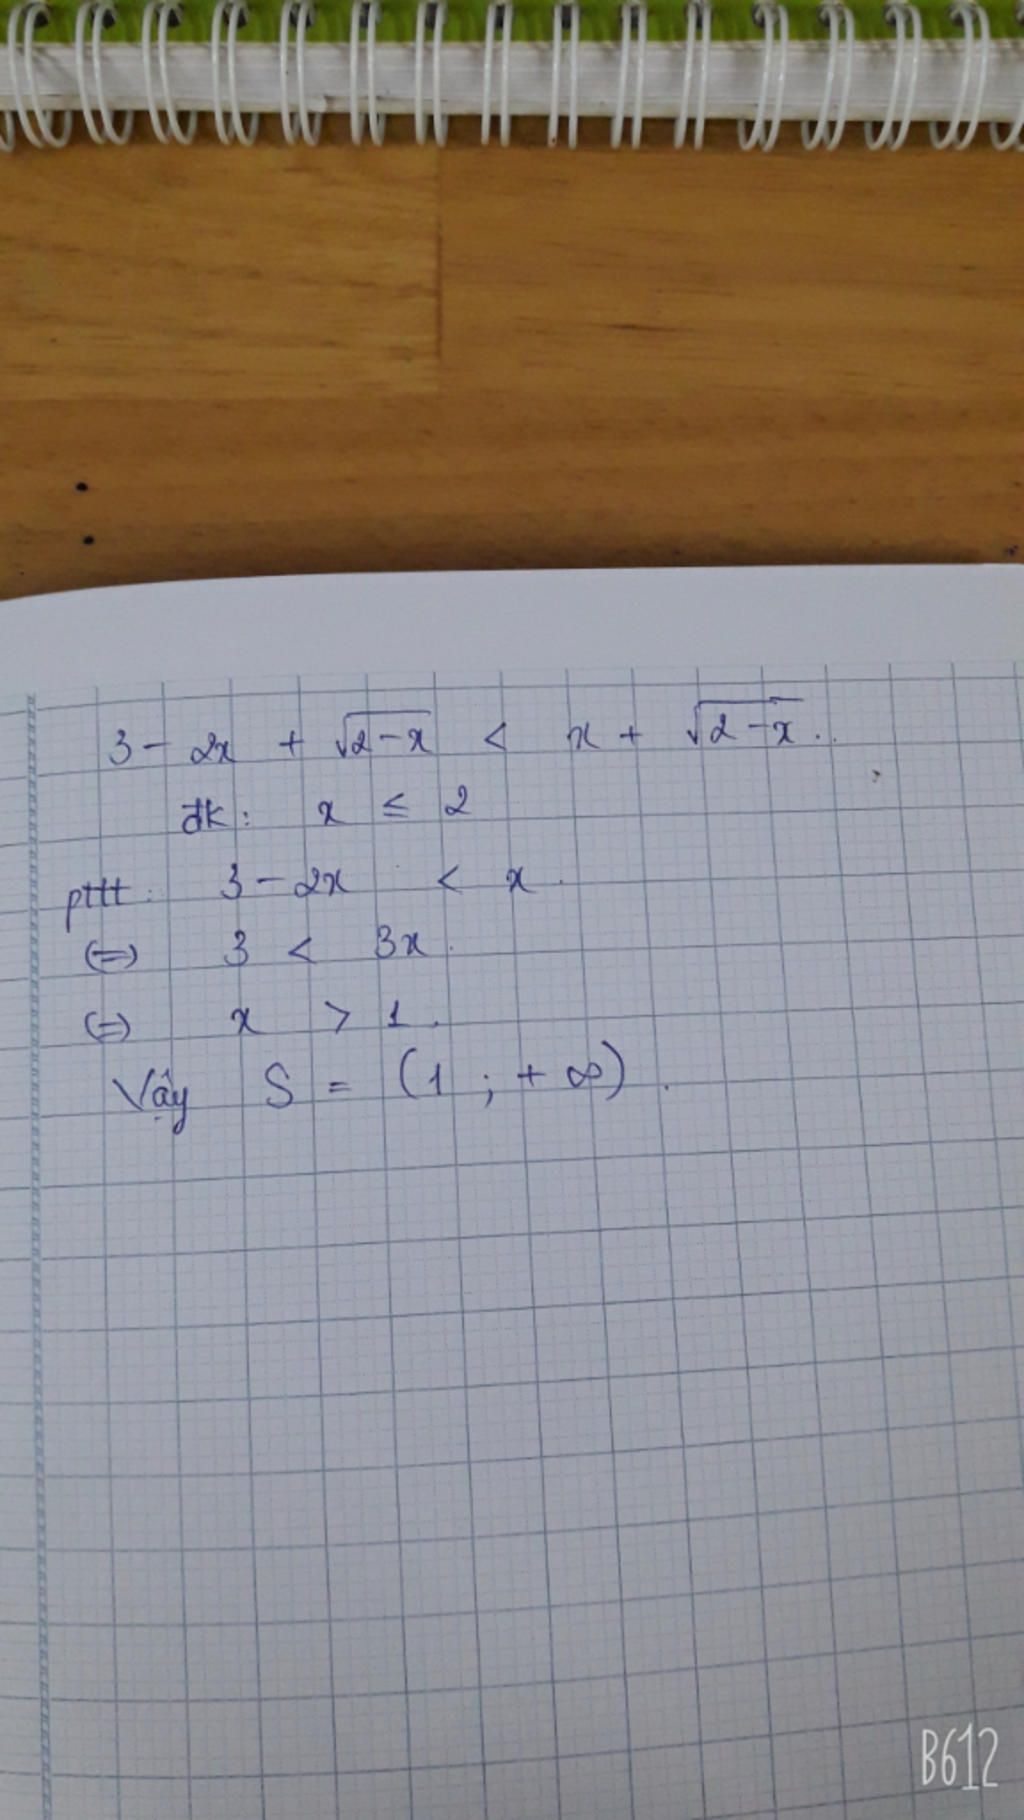 3 - 2x + √2-x < x + √2-x.
đk: x ≤ 2
pttt: 3 - 2x < x.
(=) 3 < 3x.
(=) x > 1.
Vậy S = (1 ; + ∞).
B612